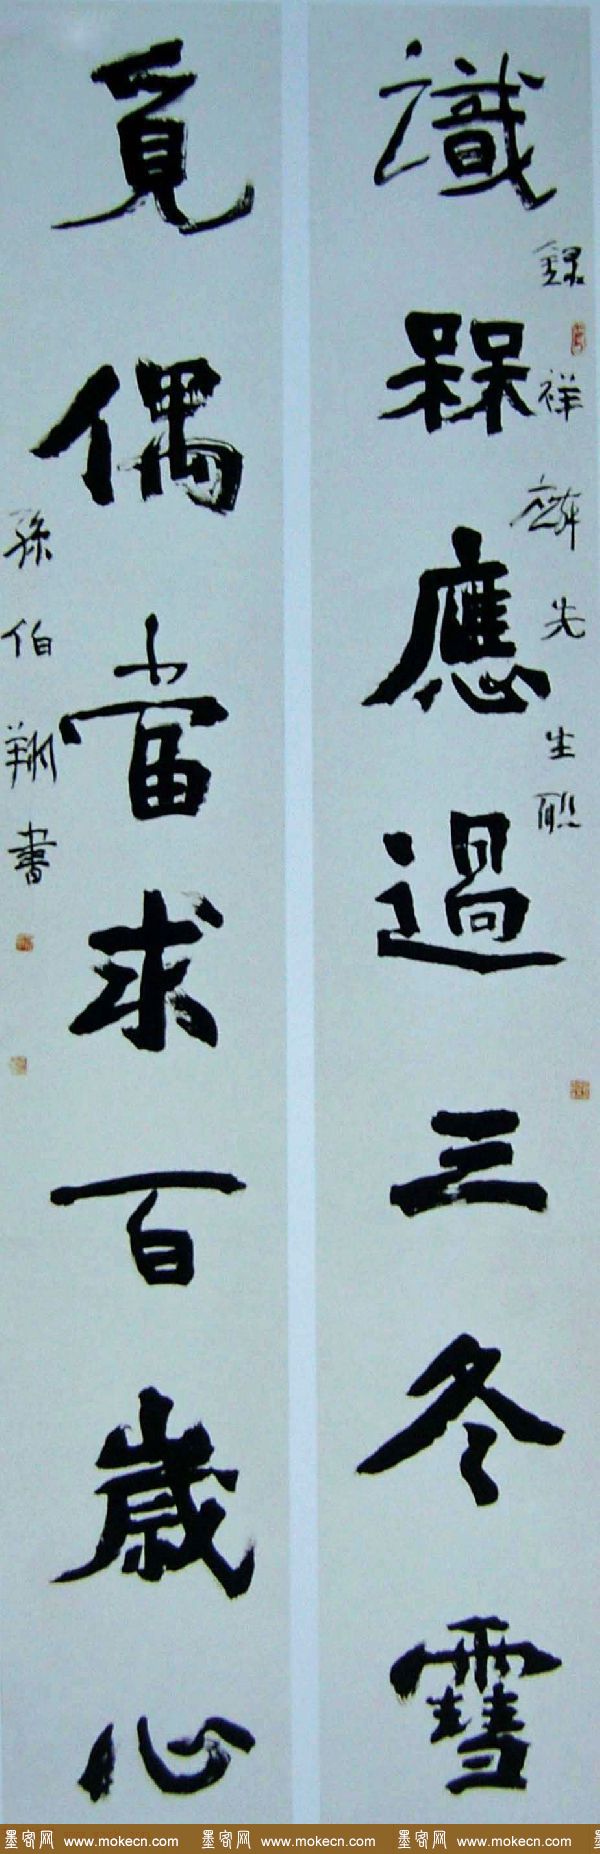 識槑應過三冬雪
錄祥麟先生聯
覓偶當求百歲心
孫伯翔書
墨客网 www.mokecn.com 墨客网 www.mokecn.com 墨客网 www.mokecn.com 墨